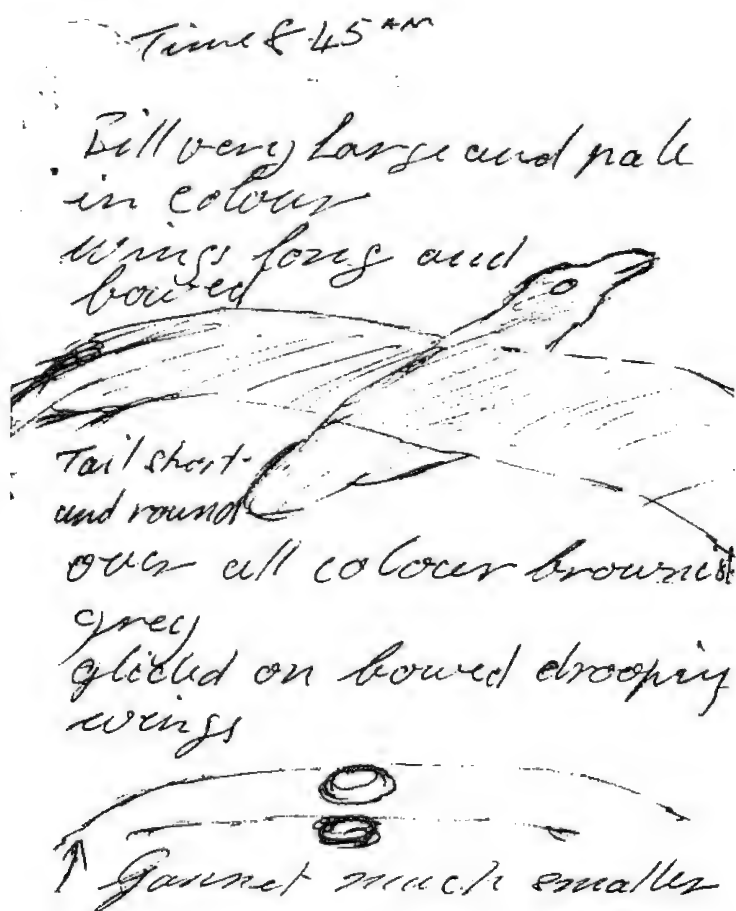 Time 8.45 AM
Bill very large and pale
in colour
wings long and
bowed
Tail short
and round
over all colour brownish
grey
glided on bowed drooping
wings
Gannet much smaller